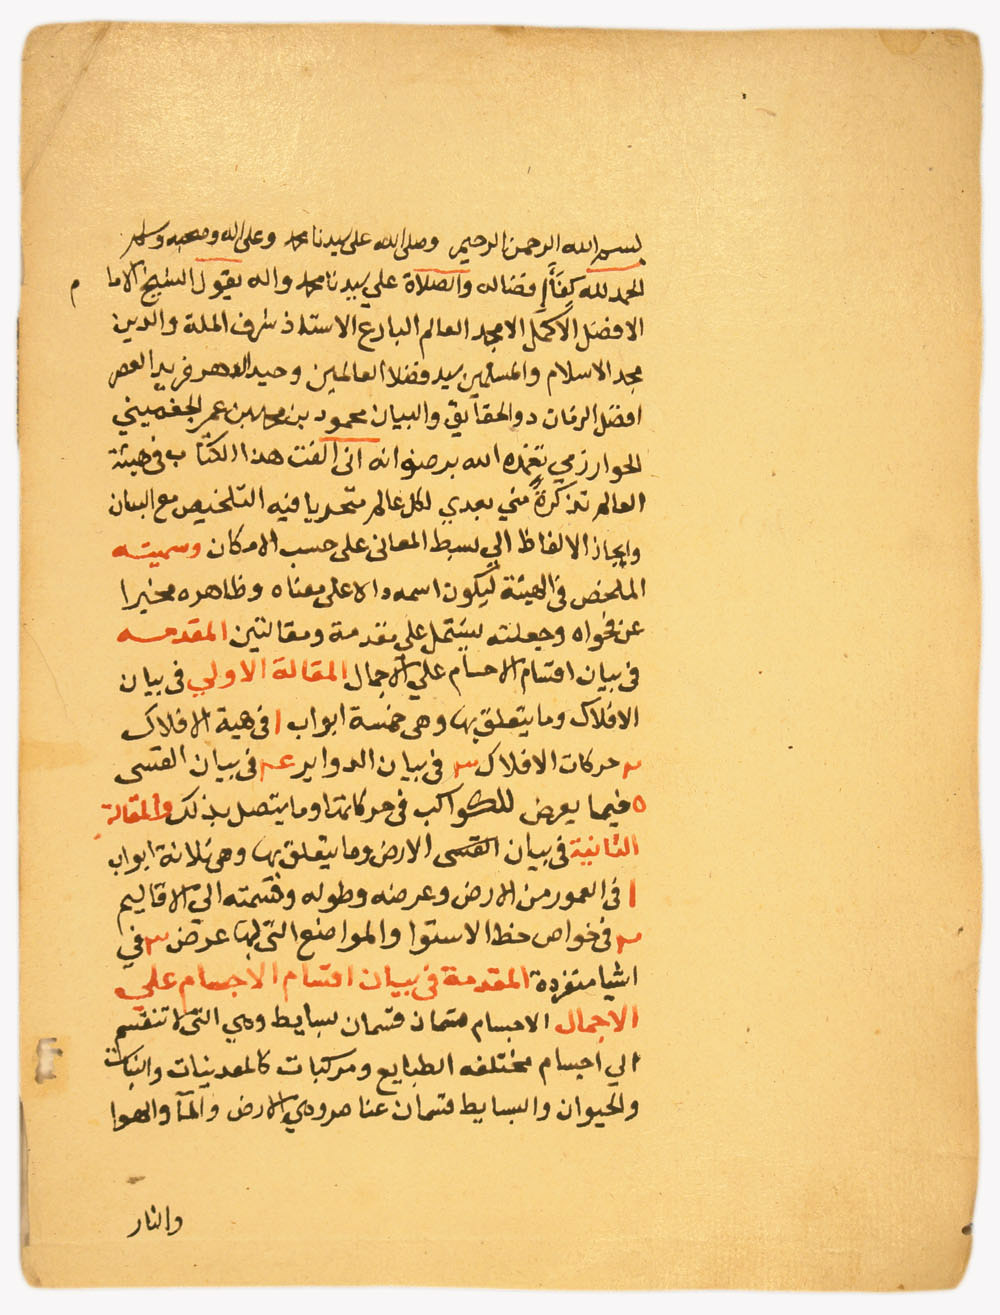 بسم الله الرحمن الرحيم وصلى الله على سيدنا محمد وعلى اله وصحبه وسلم
الحمد لله كفآء افضاله والصلاة علي سيدنا محمد واله يقول الشيخ الاما م
الافضل الاكمل الامجد العالم البارع الاستاذ شرف الملة والدين
مجد الاسلام والمسلمين سيد فضلا العالمين وحيد الدهر فريد العصر
افضل الزمان ذو الحقايق والبيان محمود بن محمد بن عمر الجغميني
الخوارزمي تغمده الله برضوانه انى الفت هذا الكتاب فى هيئة
العالم تذكرةً مني بعدي لكل عالم متحريا فيه التلخيص مع البيان
وايجاز الالفاظ الي بسط المعانى على حسب الامكان وسميته
الملخص فى الهيئة ليكون اسمه دالا على معناه وظاهره مخبرا
عن فحواه وجعلته يشتمل علي مقدمة ومقالتين المقدمه
فى بيان اقسام الاجسام علي الاجمال المقالة الاولي فى بيان
الافلاك وما يتعلق بها وهى خمسة ابواب ا فى هية الافلاك
٢ حركات الافلاك ٣ فى بيان الدواير ٤ فى بيان القسى
٥ فيما يعرض للكواكب فى حركاتها وما يتصل بذلك والمقالة
الثانية فى بيان القسى الارض وما يتعلق بها وهى ثلاثة ابواب
ا فى المعمور من الارض وعرضه وطوله وقسمته الى الاقاليم
٢ فى خواص خط الاستوا والمواضع التى لها عرض ٣ في
اشيا منفردة المقدمة فى بيان اقسام الاجسام علي
الاجمال الاجسام قسمان قسمان بسايط وهي التى لا تنقسم
الي اجسام مختلفه الطبايع ومركبات كالمعدنيات والنبات
والحيوان والبسايط قسمان عناصر وهي الارض والمآ والهوا
والنار